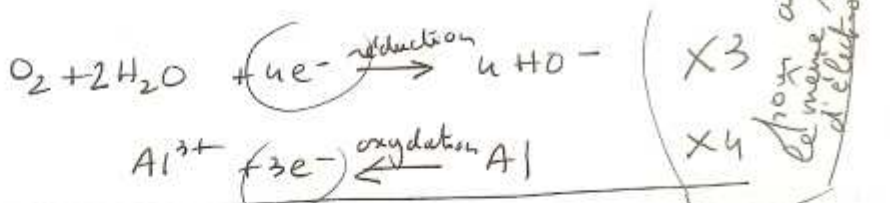 O₂ + 2H₂O + 4e⁻ réduction → 4 HO⁻ ×3
Al³⁺ + 3e⁻ oxydation ← Al ×4
pour
le même
d'électro